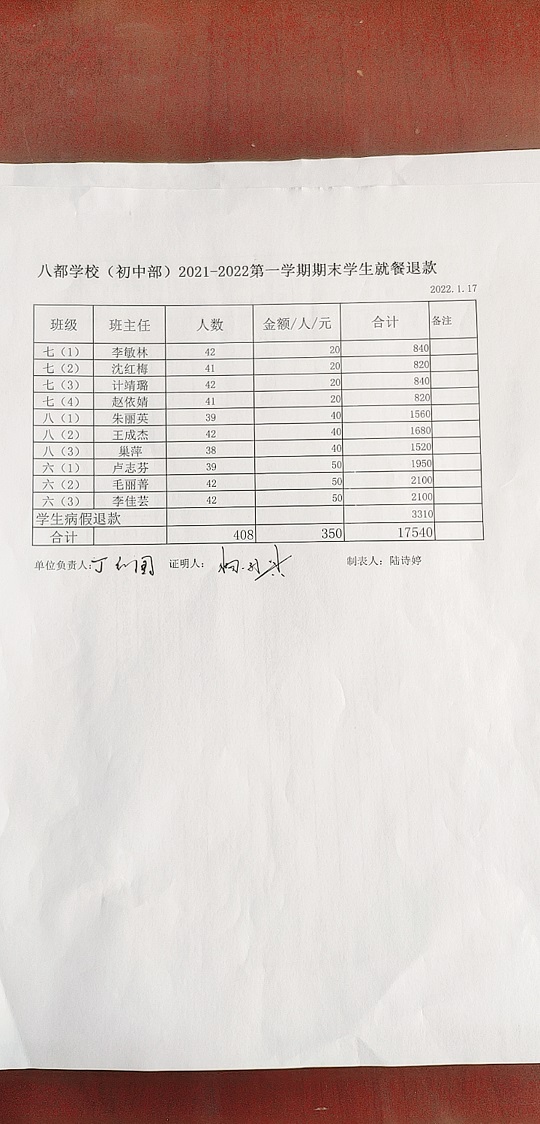 八都学校（初中部）2021-2022第一学期期末学生就餐退款
2022.1.17
班级 班主任 人数 金额/人/元 合计 备注
七（1） 李敏林 42 20 840
七（2） 沈红梅 41 20 820
七（3） 计靖璐 42 20 840
七（4） 赵依婧 41 20 820
八（1） 朱丽英 39 40 1560
八（2） 王成杰 42 40 1680
八（3） 巢萍 38 40 1520
六（1） 卢志芬 39 50 1950
六（2） 毛丽菁 42 50 2100
六（3） 李佳芸 42 50 2100
学生病假退款 3310
合计 408 350 17540
单位负责人: 证明人: 制表人: 陆诗婷